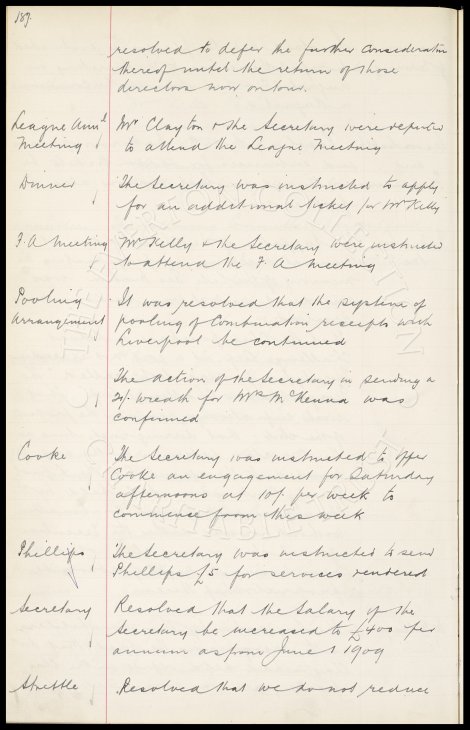 189.
resolved to defer the further consideration
thereof until the return of those
directors now on tour.
League Annl Mr Clayton & the Secretary were deputed
Meeting to attend the League Meeting
Dinner The Secretary was instructed to apply
for an additional ticket for Mr Kelly
F.A Meeting Mr Kelly & the Secretary were instructed
to attend the F.A Meeting
Pooling It was resolved that the system of
Arrangement pooling of Combination receipts with
Liverpool be continued
The action of the Secretary in sending a
21/- wreath for Mrs McKenna was
confirmed
Cooke The Secretary was instructed to offer
Cooke an engagement for Saturday
afternoons at 10/- per week to
commence from this week
Phillips The Secretary was instructed to send
Phillips £5 for services rendered
Secretary Resolved that the Salary of the
Secretary be increased to £400 per
annum as from June 1 1909
Strettle Resolved that we do not reduce